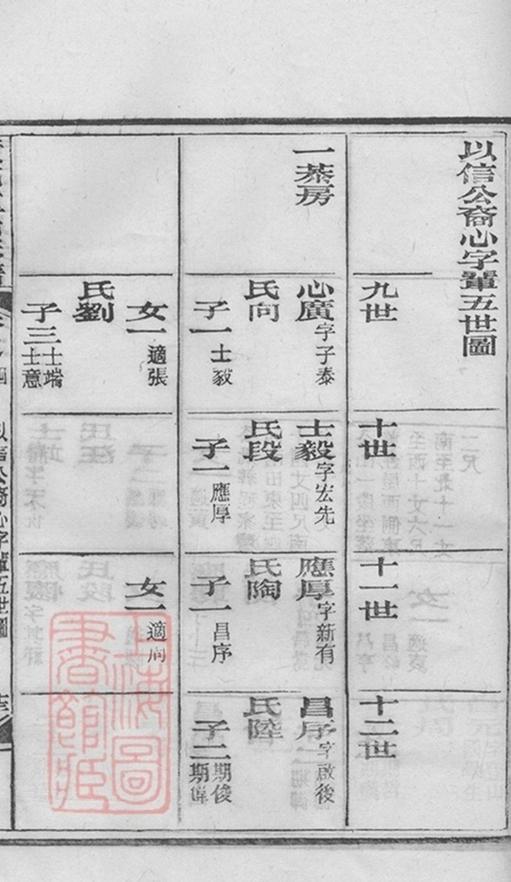 以信公裔心字輩五世圖
九世
十世
十一世
十二世
一葊房
心廣 字子泰
氏向
子一 士毅
女一 適張
氏劉
子三 士端 士意
士毅 字宏先
氏段
子一 應厚
應厚 字新有
氏陶
子一 昌序
女一 適向
昌序 字啟後
氏陸
子二 期俊 期偉
以信公裔心字輩五世圖